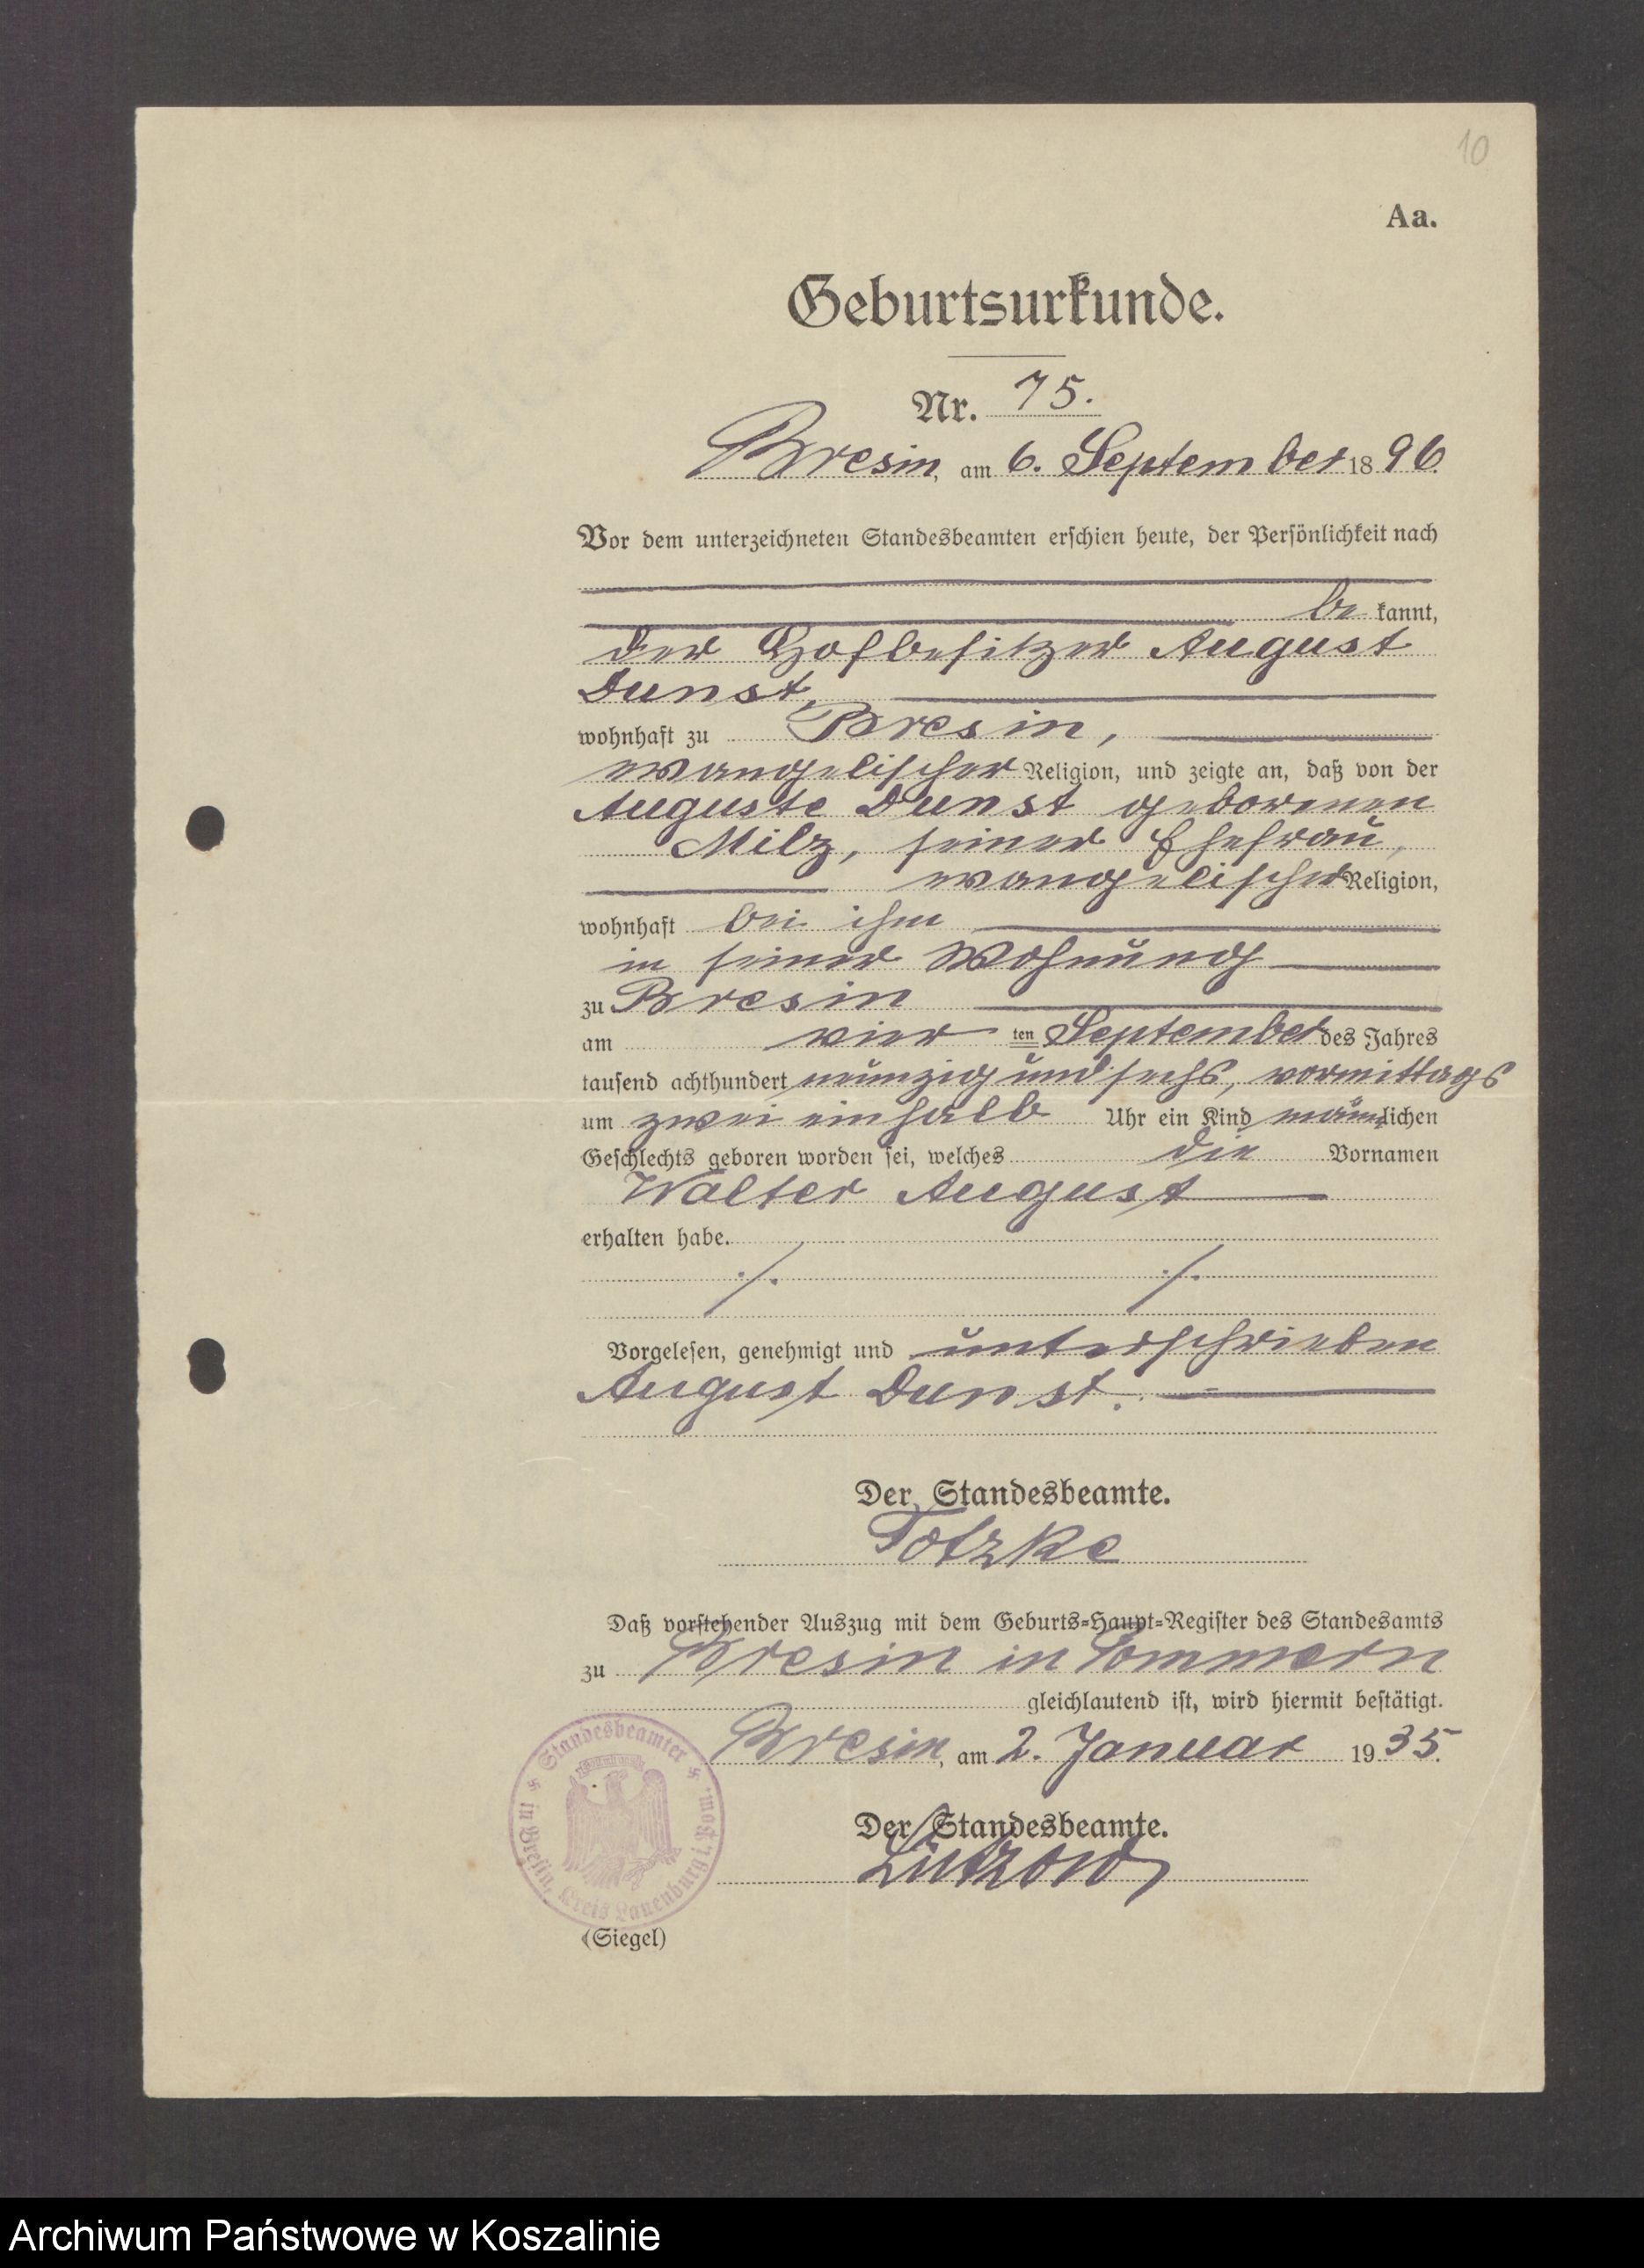 10
Aa.
Geburtsurkunde.
Nr. 75.
Bresin, am 6. September 1896.
Vor dem unterzeichneten Standesbeamten erschien heute, der Persönlichkeit nach
be kannt,
der Hofbesitzer August
Dunst,
wohnhaft zu Bresin,
evangelischer Religion, und zeigte an, daß von der
Auguste Dunst geborenen
Milz, seiner Ehefrau,
evangelischer Religion,
wohnhaft bei ihm
in seiner Wohnung
zu Bresin
am vier ten September des Jahres
tausend achthundert neunzig und sechs, vormittags
um zwei einhalb Uhr ein Kind männlichen
Geschlechts geboren worden sei, welches die Vornamen
Walter August
erhalten habe.
./. ./.
Vorgelesen, genehmigt und unterschrieben
August Dunst.
Der Standesbeamte.
Totzke
Daß vorstehender Auszug mit dem Geburts-Haupt-Register des Standesamts
zu Bresin in Pommern
gleichlautend ist, wird hiermit bestätigt.
Bresin, am 2. Januar 1935.
Standesbeamter in Bresin, Kreis Lauenburg i. Pom.
Der Standesbeamte.
Lützow
(Siegel)
Archiwum Państwowe w Koszalinie